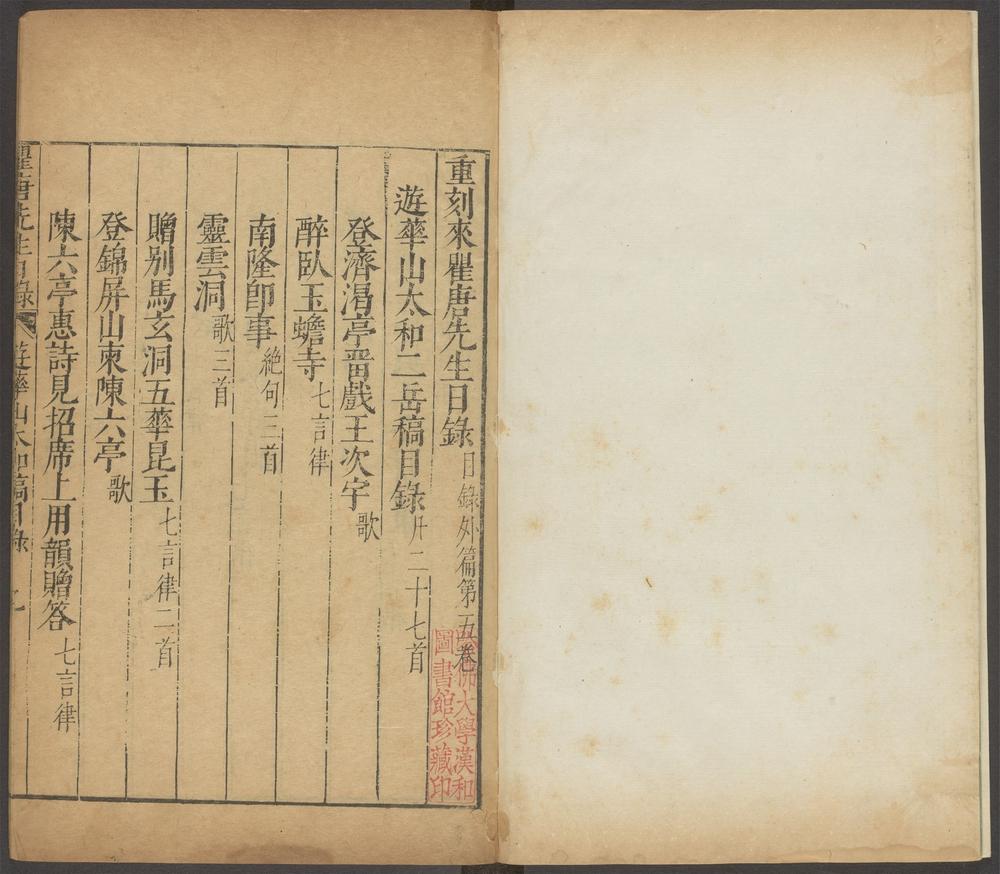 重刻來瞿唐先生日錄 日錄外篇第五卷
遊華山太和二岳稿目錄 凡二十七首
登濟渴亭畱戲王次宇 歌
醉臥玉蟾寺 七言律
南隆即事 絶句三首
靈雲洞 歌三首
贈别馬玄洞五華昆玉 七言律二首
登錦屏山柬陳六亭 歌
陳六亭惠詩見招席上用韻贈答 七言律
瞿唐先生日錄 遊華山太和稿目錄
哈佛大學漢和
圖書館珍藏印